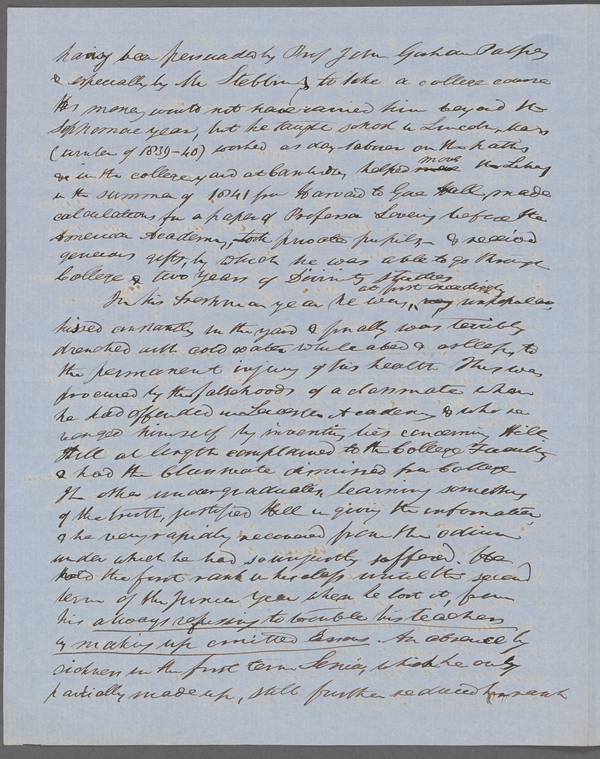 having been persuaded by Prof John Graham Palfrey
& especially by Mr Stebbins to take a college course
His money would not have carried him beyond the
Sophomore year, but he taught school in Lincoln, Mass
(winter of 1839-40) worked as day-laborer on the paths
in the college yard at Cambridge, helped move the Library
in the summer of 1841 from Harvard to Gore Hall, made
calculations for a paper of Professor Lovering before the
American Academy, took private pupils & received
generous gifts, by which he was able to go through
College & two years of Divinity studies
In his Freshman year he was, at first exceedingly unpopular
hissed constantly in the yard & finally was terribly
drenched with cold water while abed & asleep, to
the permanent injury of his health This was
procured by the falsehoods of a classmate whom
he had offended in Leicester Academy & who re
venged himself by inventing lies concerning Hill
Hill at length complained to the College Faculty
& had the classmate dismissed from College
The other undergraduates, learning something
of the truth, justified Hill in giving the information
& he very rapidly recovered from the odium
under which he had so unjustly suffered. He
held the first rank in his class until the second
term of the Junior Year when he lost it, from
his always refusing to trouble his teachers
by making up omitted lessons. An absence by
sickness in the first term Senior, which he only
partially made up, still further reduced his rank